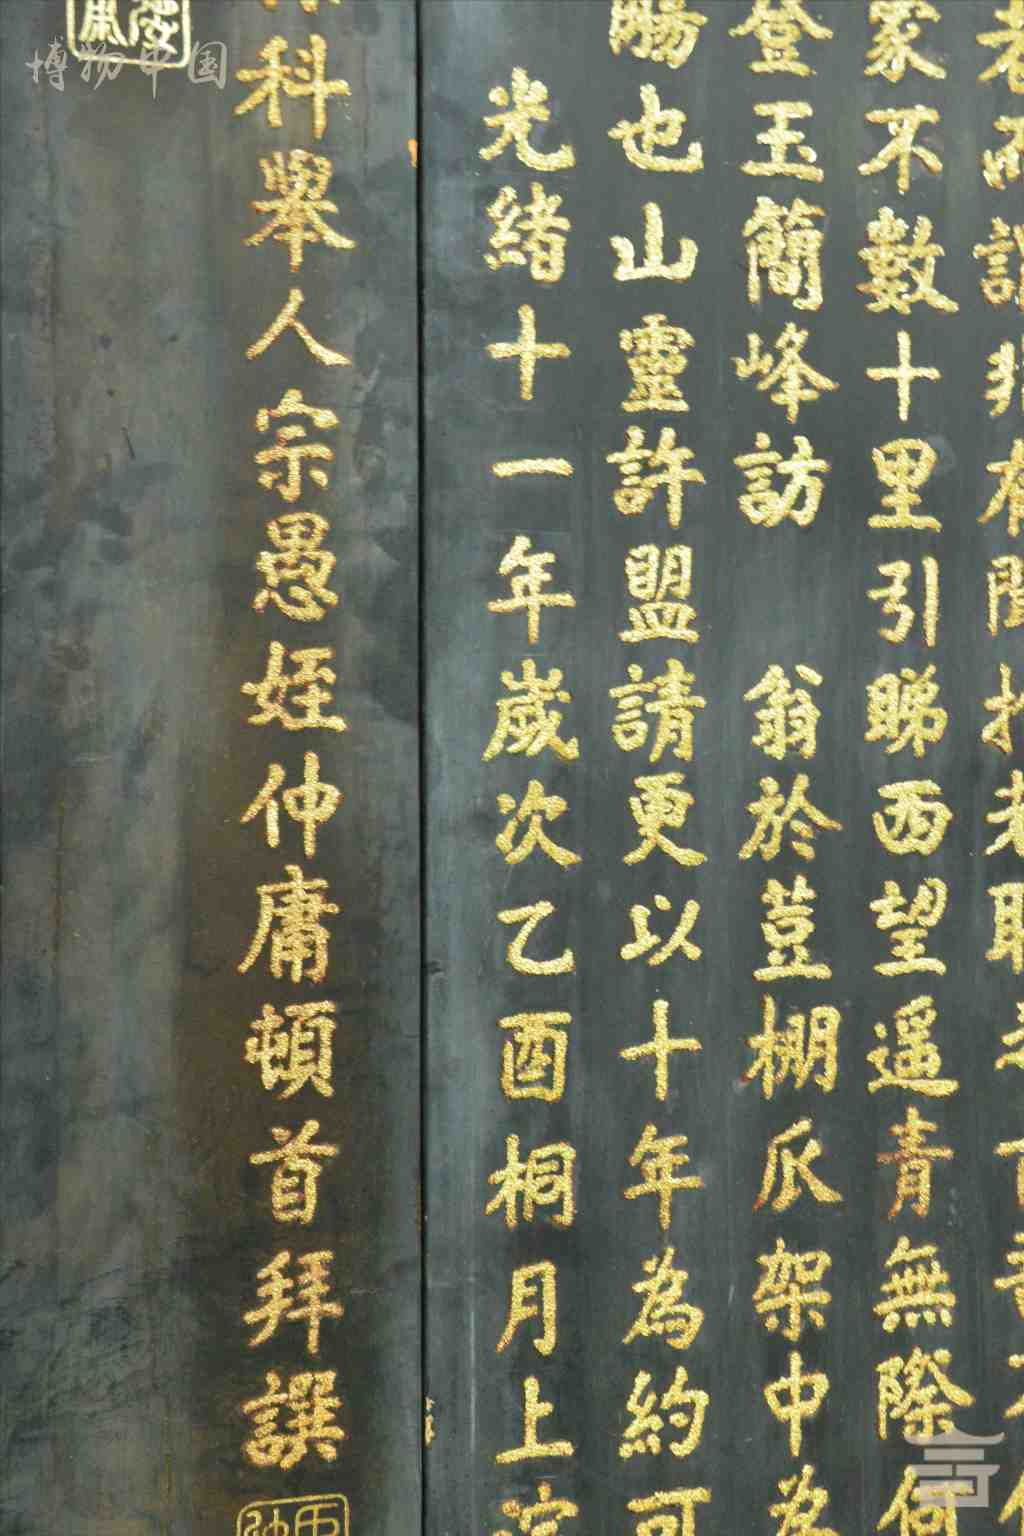 者而謂非有聞
家不數十里引睇西望遥青無際何
登玉簡峰訪 翁於荳棚瓜架中為
觴也山靈許盟請更以十年為約可
光緒十一年歲次乙酉桐月上浣
科舉人宗愚姪仲庸頓首拜譔
博物中国